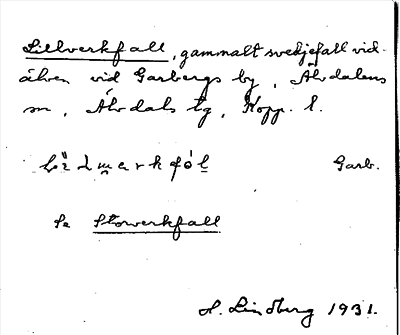 Lillverkfall, gammalt svedjefall vid
älven vid Garbergs by, Älvdalens
sn, Älvdals tg, Kopp. l.
Garb.
Se Storverkfall
H. Lindberg 1931.